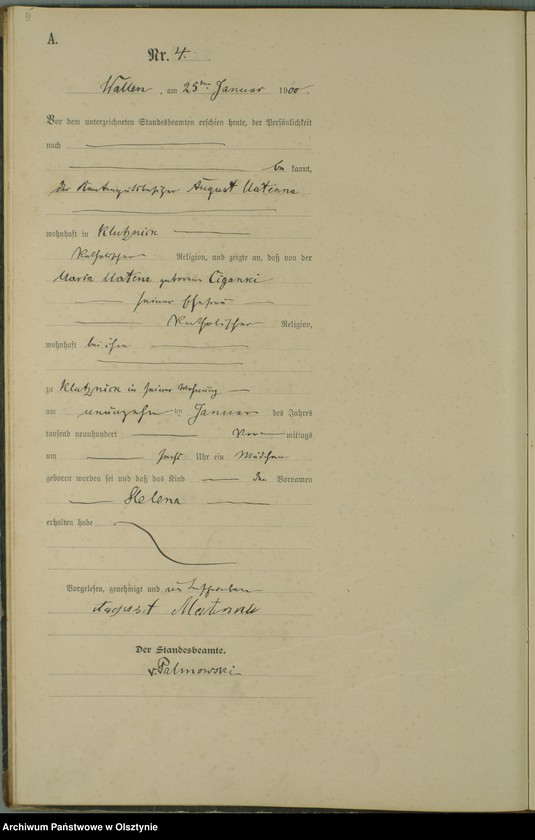 A.
Nr. 4.
Wallen, am 25ten Januar 1900.
Vor dem unterzeichneten Standesbeamten erschien heute, der Persönlichkeit
nach
be kannt,
der Rentengutsbesitzer August
wohnhaft in Klutznick
Katholischer Religion, und zeigte an, daß von der
Maria geborene Ciganski
seiner Ehefrau
Katholischer Religion,
wohnhaft bei ihm
zu Klutznick in seiner Wohnung
am neunzehnten Januar des Jahres
tausend neunhundert Vor mittags
um sechs Uhr ein Mädchen
geboren worden sei und daß das Kind den Vornamen
Helena
erhalten habe
Vorgelesen, genehmigt und unterschrieben
August
Der Standesbeamte.
v. Palmowski
Archiwum Państwowe w Olsztynie